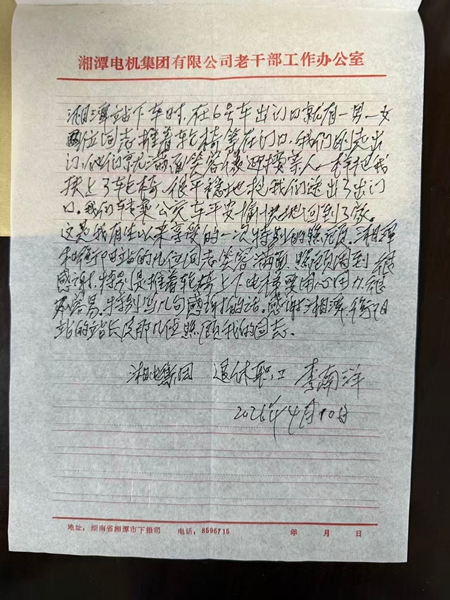 湘潭电机集团有限公司老干部工作办公室
湘潭站下车时，在6号车出门口就有一男一女
两位同志推着轮椅等在门口，我们刚走出
门，他们就满面笑容像迎接亲人一样把我
扶上了车轮椅，很平稳地把我们送出了出门
口。我们转乘公交车平安愉快地回到了家。
这是我有生以来享受的一次特别的照顾，湘潭
和衡阳站的几位同志笑容满面照顾周到很
感谢，特别是推着轮椅上下电梯要用心用力很
不容易，特别写几句感谢的话。感谢湘潭、衡阳
站的站长及那几位照顾我的同志。
湘电集团 退休职工 李南洋
2025年4月10日
地址：湖南省湘潭市下摄司 电话：8595715 年 月 日